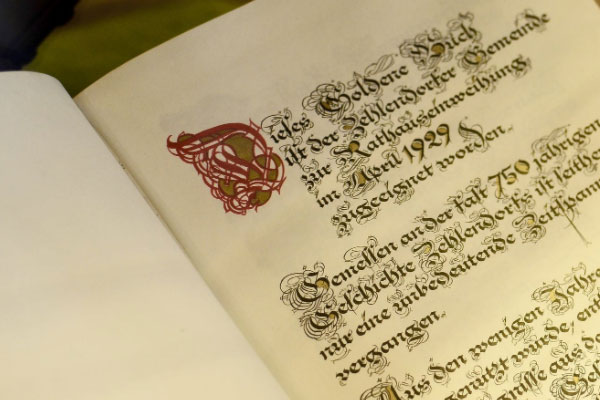 Dieses Goldene Buch
ist der Zehlendorfer Gemeinde
zur Rathauseinweihung
im April 1929
zugeeignet worden.
Gemessen an der fast 750 jährigen
Geschichte Zehlendorfs ist seither
nur eine unbedeutende Zeitspanne
vergangen.
Aus den wenigen Jahre
genützt wurde, ent
nisse aus de